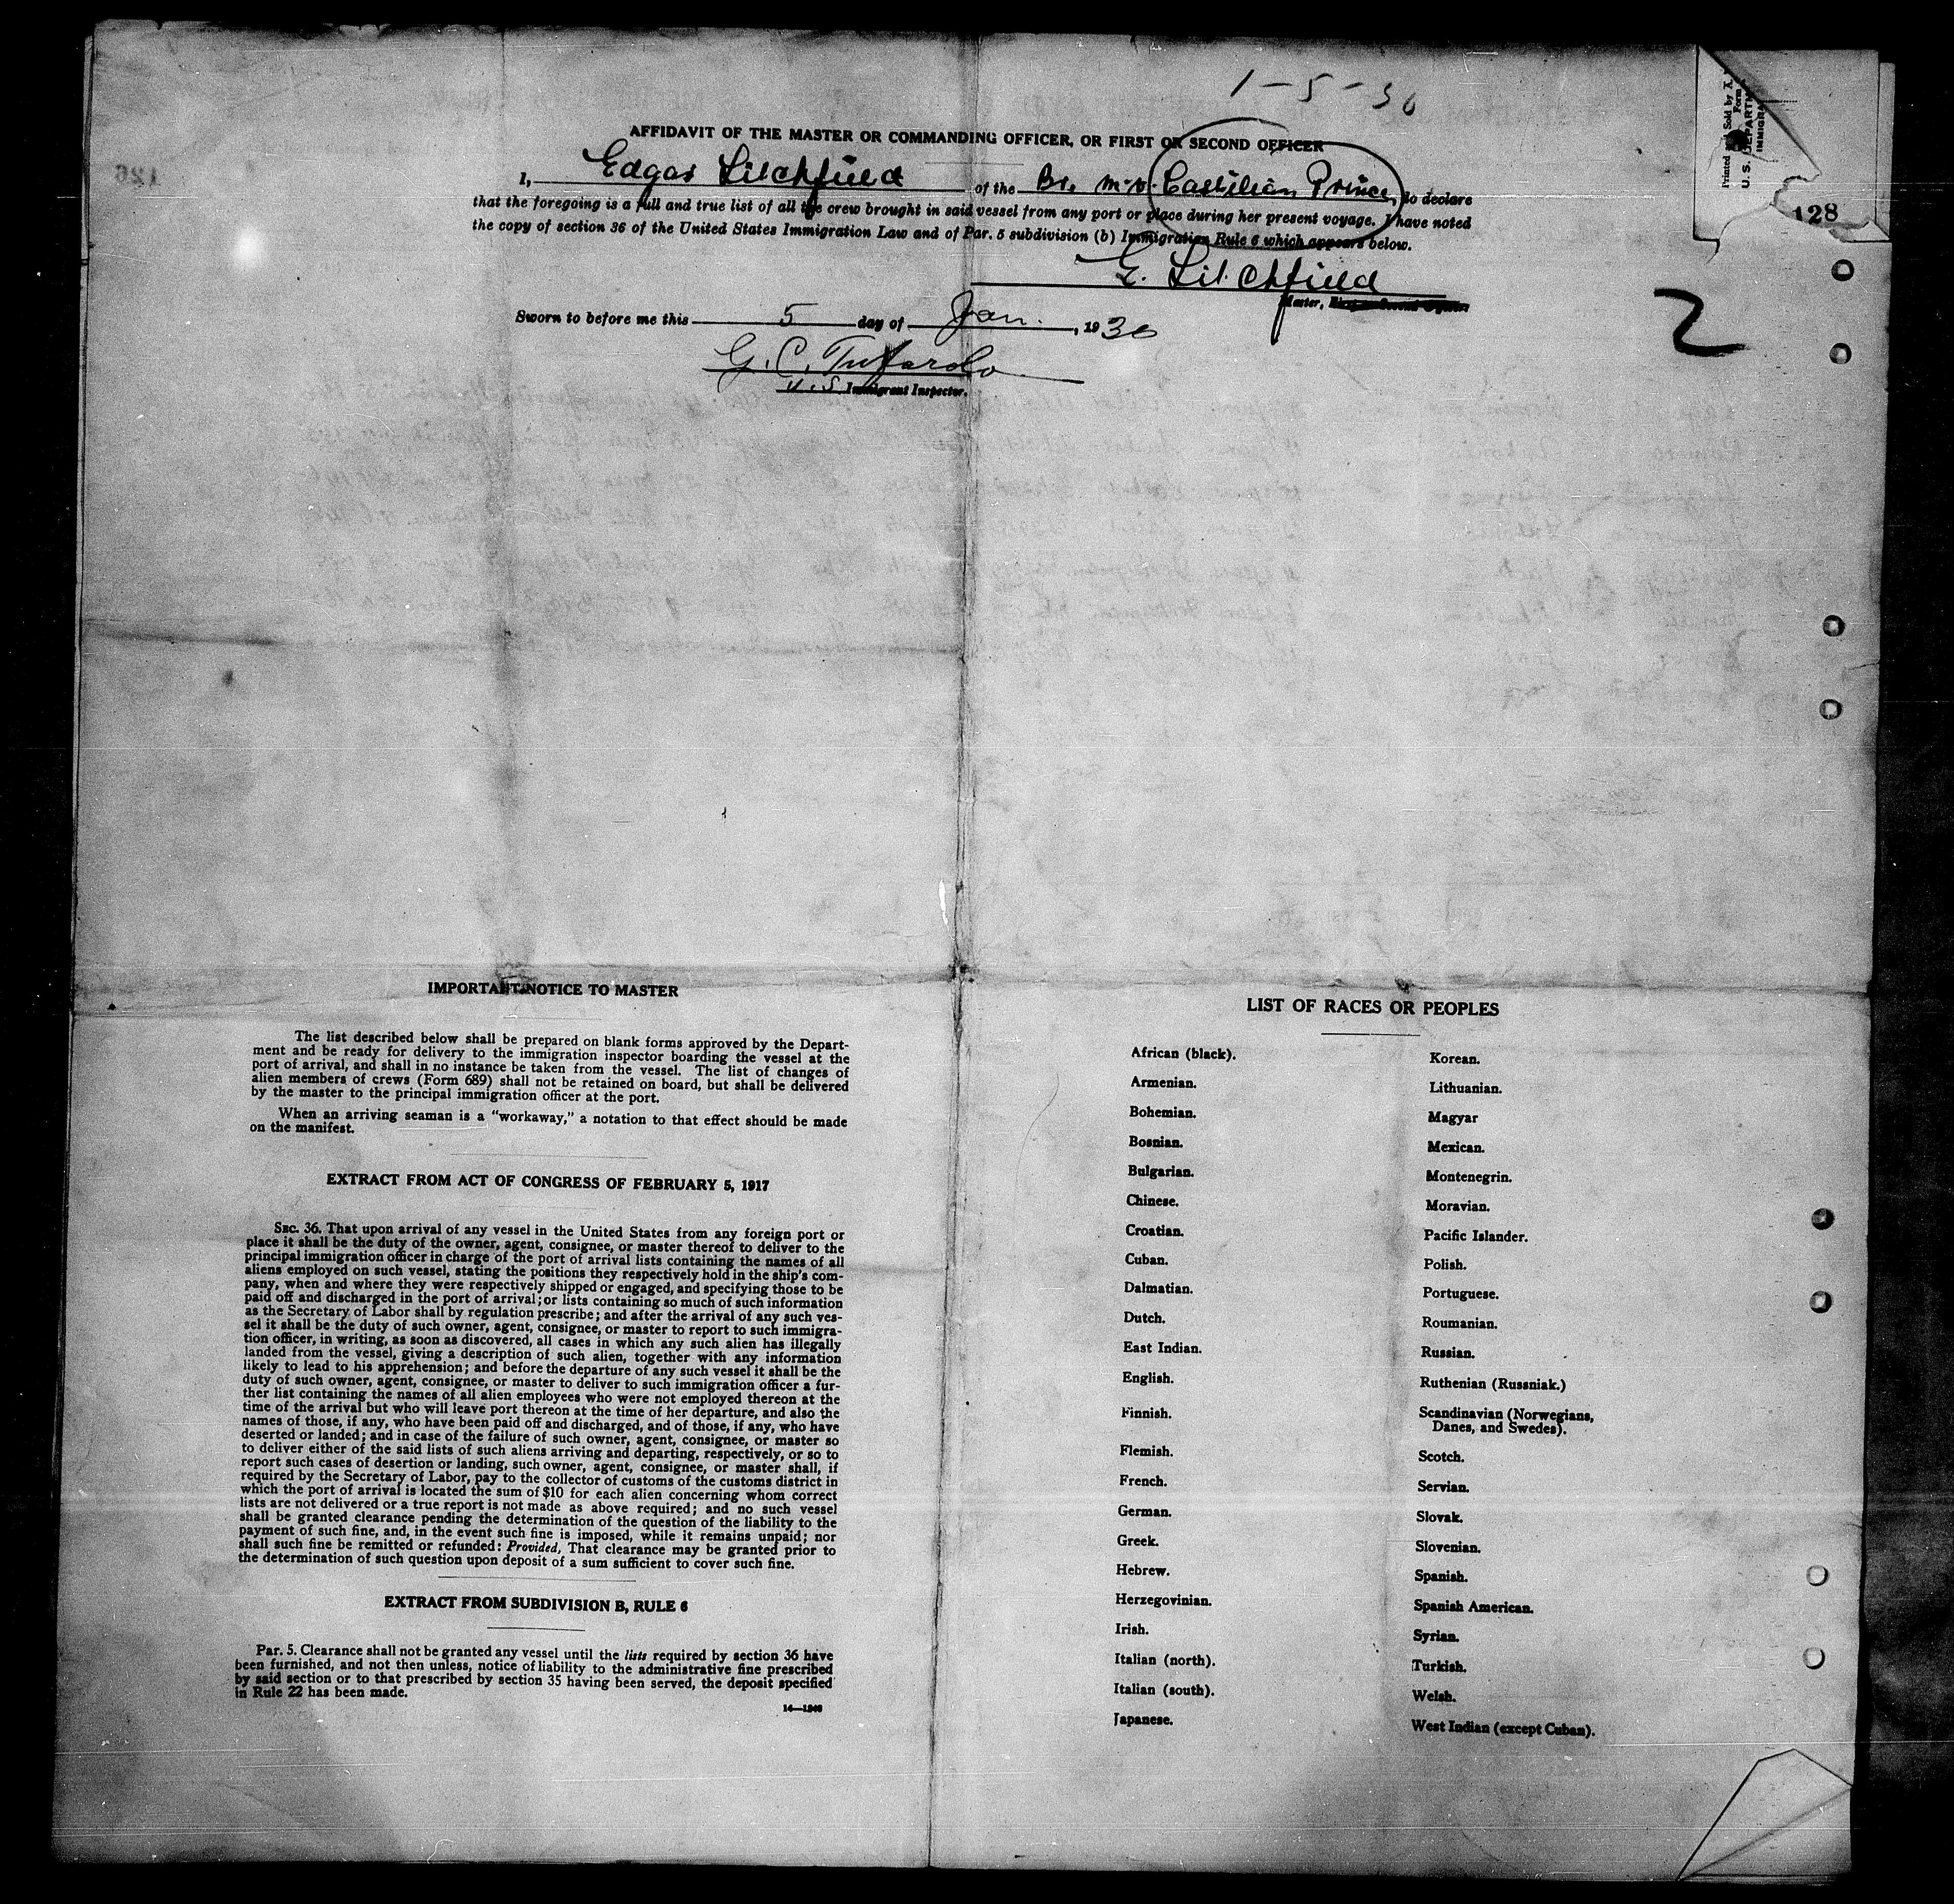 1-5-30
Printed and Sold by
Form
U. S. DEPARTM
IMMIGRA
128
126
AFFIDAVIT OF THE MASTER OR COMMANDING OFFICER, OR FIRST OR SECOND OFFICER
I, Edgar Litchfield of the Br. m.v. Castilian Prince, do declare
that the foregoing is a full and true list of all the crew brought in said vessel from any port or place during her present voyage. I have noted
the copy of section 36 of the United States Immigration Law and of Par. 5 subdivision (b) Immigration Rule 6 which appears below.
E. Litchfield
Master, First or Second Officer
2
Sworn to before me this 5 day of Jan., 1930
G. C.
U.S. Immigrant Inspector.
IMPORTANT NOTICE TO MASTER
The list described below shall be prepared on blank forms approved by the Depart-
ment and be ready for delivery to the immigration inspector boarding the vessel at the
port of arrival, and shall in no instance be taken from the vessel. The list of changes of
alien members of crews (Form 689) shall not be retained on board, but shall be delivered
by the master to the principal immigration officer at the port.
When an arriving seaman is a "workaway," a notation to that effect should be made
on the manifest.
EXTRACT FROM ACT OF CONGRESS OF FEBRUARY 5, 1917
SEC. 36. That upon arrival of any vessel in the United States from any foreign port or
place it shall be the duty of the owner, agent, consignee, or master thereof to deliver to the
principal immigration officer in charge of the port of arrival lists containing the names of all
aliens employed on such vessel, stating the positions they respectively hold in the ship's com-
pany, when and where they were respectively shipped or engaged, and specifying those to be
paid off and discharged in the port of arrival; or lists containing so much of such information
as the Secretary of Labor shall by regulation prescribe; and after the arrival of any such ves-
sel it shall be the duty of such owner, agent, consignee, or master to report to such immigra-
tion officer, in writing, as soon as discovered, all cases in which any such alien has illegally
landed from the vessel, giving a description of such alien, together with any information
likely to lead to his apprehension; and before the departure of any such vessel it shall be the
duty of such owner, agent, consignee, or master to deliver to such immigration officer a fur-
ther list containing the names of all alien employees who were not employed thereon at the
time of the arrival but who will leave port thereon at the time of her departure, and also the
names of those, if any, who have been paid off and discharged, and of those, if any, who have
deserted or landed; and in case of the failure of such owner, agent, consignee, or master so
to deliver either of the said lists of such aliens arriving and departing, respectively, or so to
report such cases of desertion or landing, such owner, agent, consignee, or master shall, if
required by the Secretary of Labor, pay to the collector of customs of the customs district in
which the port of arrival is located the sum of $10 for each alien concerning whom correct
lists are not delivered or a true report is not made as above required; and no such vessel
shall be granted clearance pending the determination of the question of the liability to the
payment of such fine, and, in the event such fine is imposed, while it remains unpaid; nor
shall such fine be remitted or refunded: Provided, That clearance may be granted prior to
the determination of such question upon deposit of a sum sufficient to cover such fine.
EXTRACT FROM SUBDIVISION B, RULE 6
Par. 5. Clearance shall not be granted any vessel until the lists required by section 36 have
been furnished, and not then unless, notice of liability to the administrative fine prescribed
by said section or to that prescribed by section 35 having been served, the deposit specified
in Rule 22 has been made.
LIST OF RACES OR PEOPLES
African (black).
Armenian.
Bohemian.
Bosnian.
Bulgarian.
Chinese.
Croatian.
Cuban.
Dalmatian.
Dutch.
East Indian.
English.
Finnish.
Flemish.
French.
German.
Greek.
Hebrew.
Herzegovinian.
Irish.
Italian (north).
Italian (south).
Japanese.
Korean.
Lithuanian.
Magyar
Mexican.
Montenegrin.
Moravian.
Pacific Islander.
Polish.
Portuguese.
Roumanian.
Russian.
Ruthenian (Russniak.)
Scandinavian (Norwegians,
Danes, and Swedes).
Scotch.
Servian.
Slovak.
Slovenian.
Spanish.
Spanish American.
Syrian.
Turkish.
Welsh.
West Indian (except Cuban).